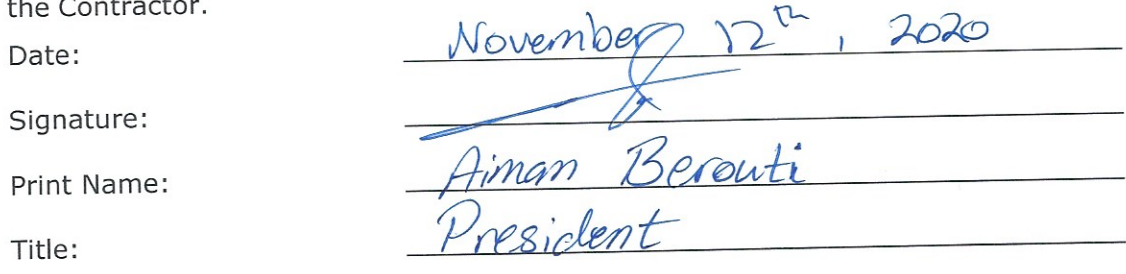 the Contractor.
Date: November 12th, 2020
Signature:
Print Name: Aiman Berouti
Title: President